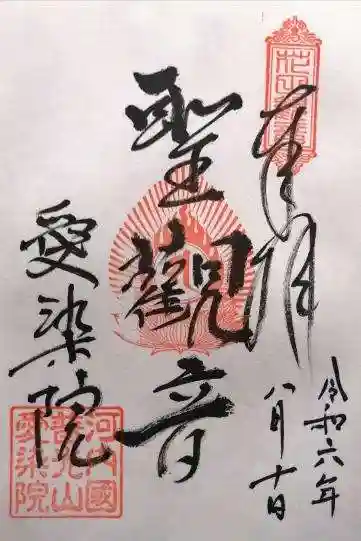 奉拝
令和六年
八月十日
聖觀音
愛染院
河内國
光山
愛染院